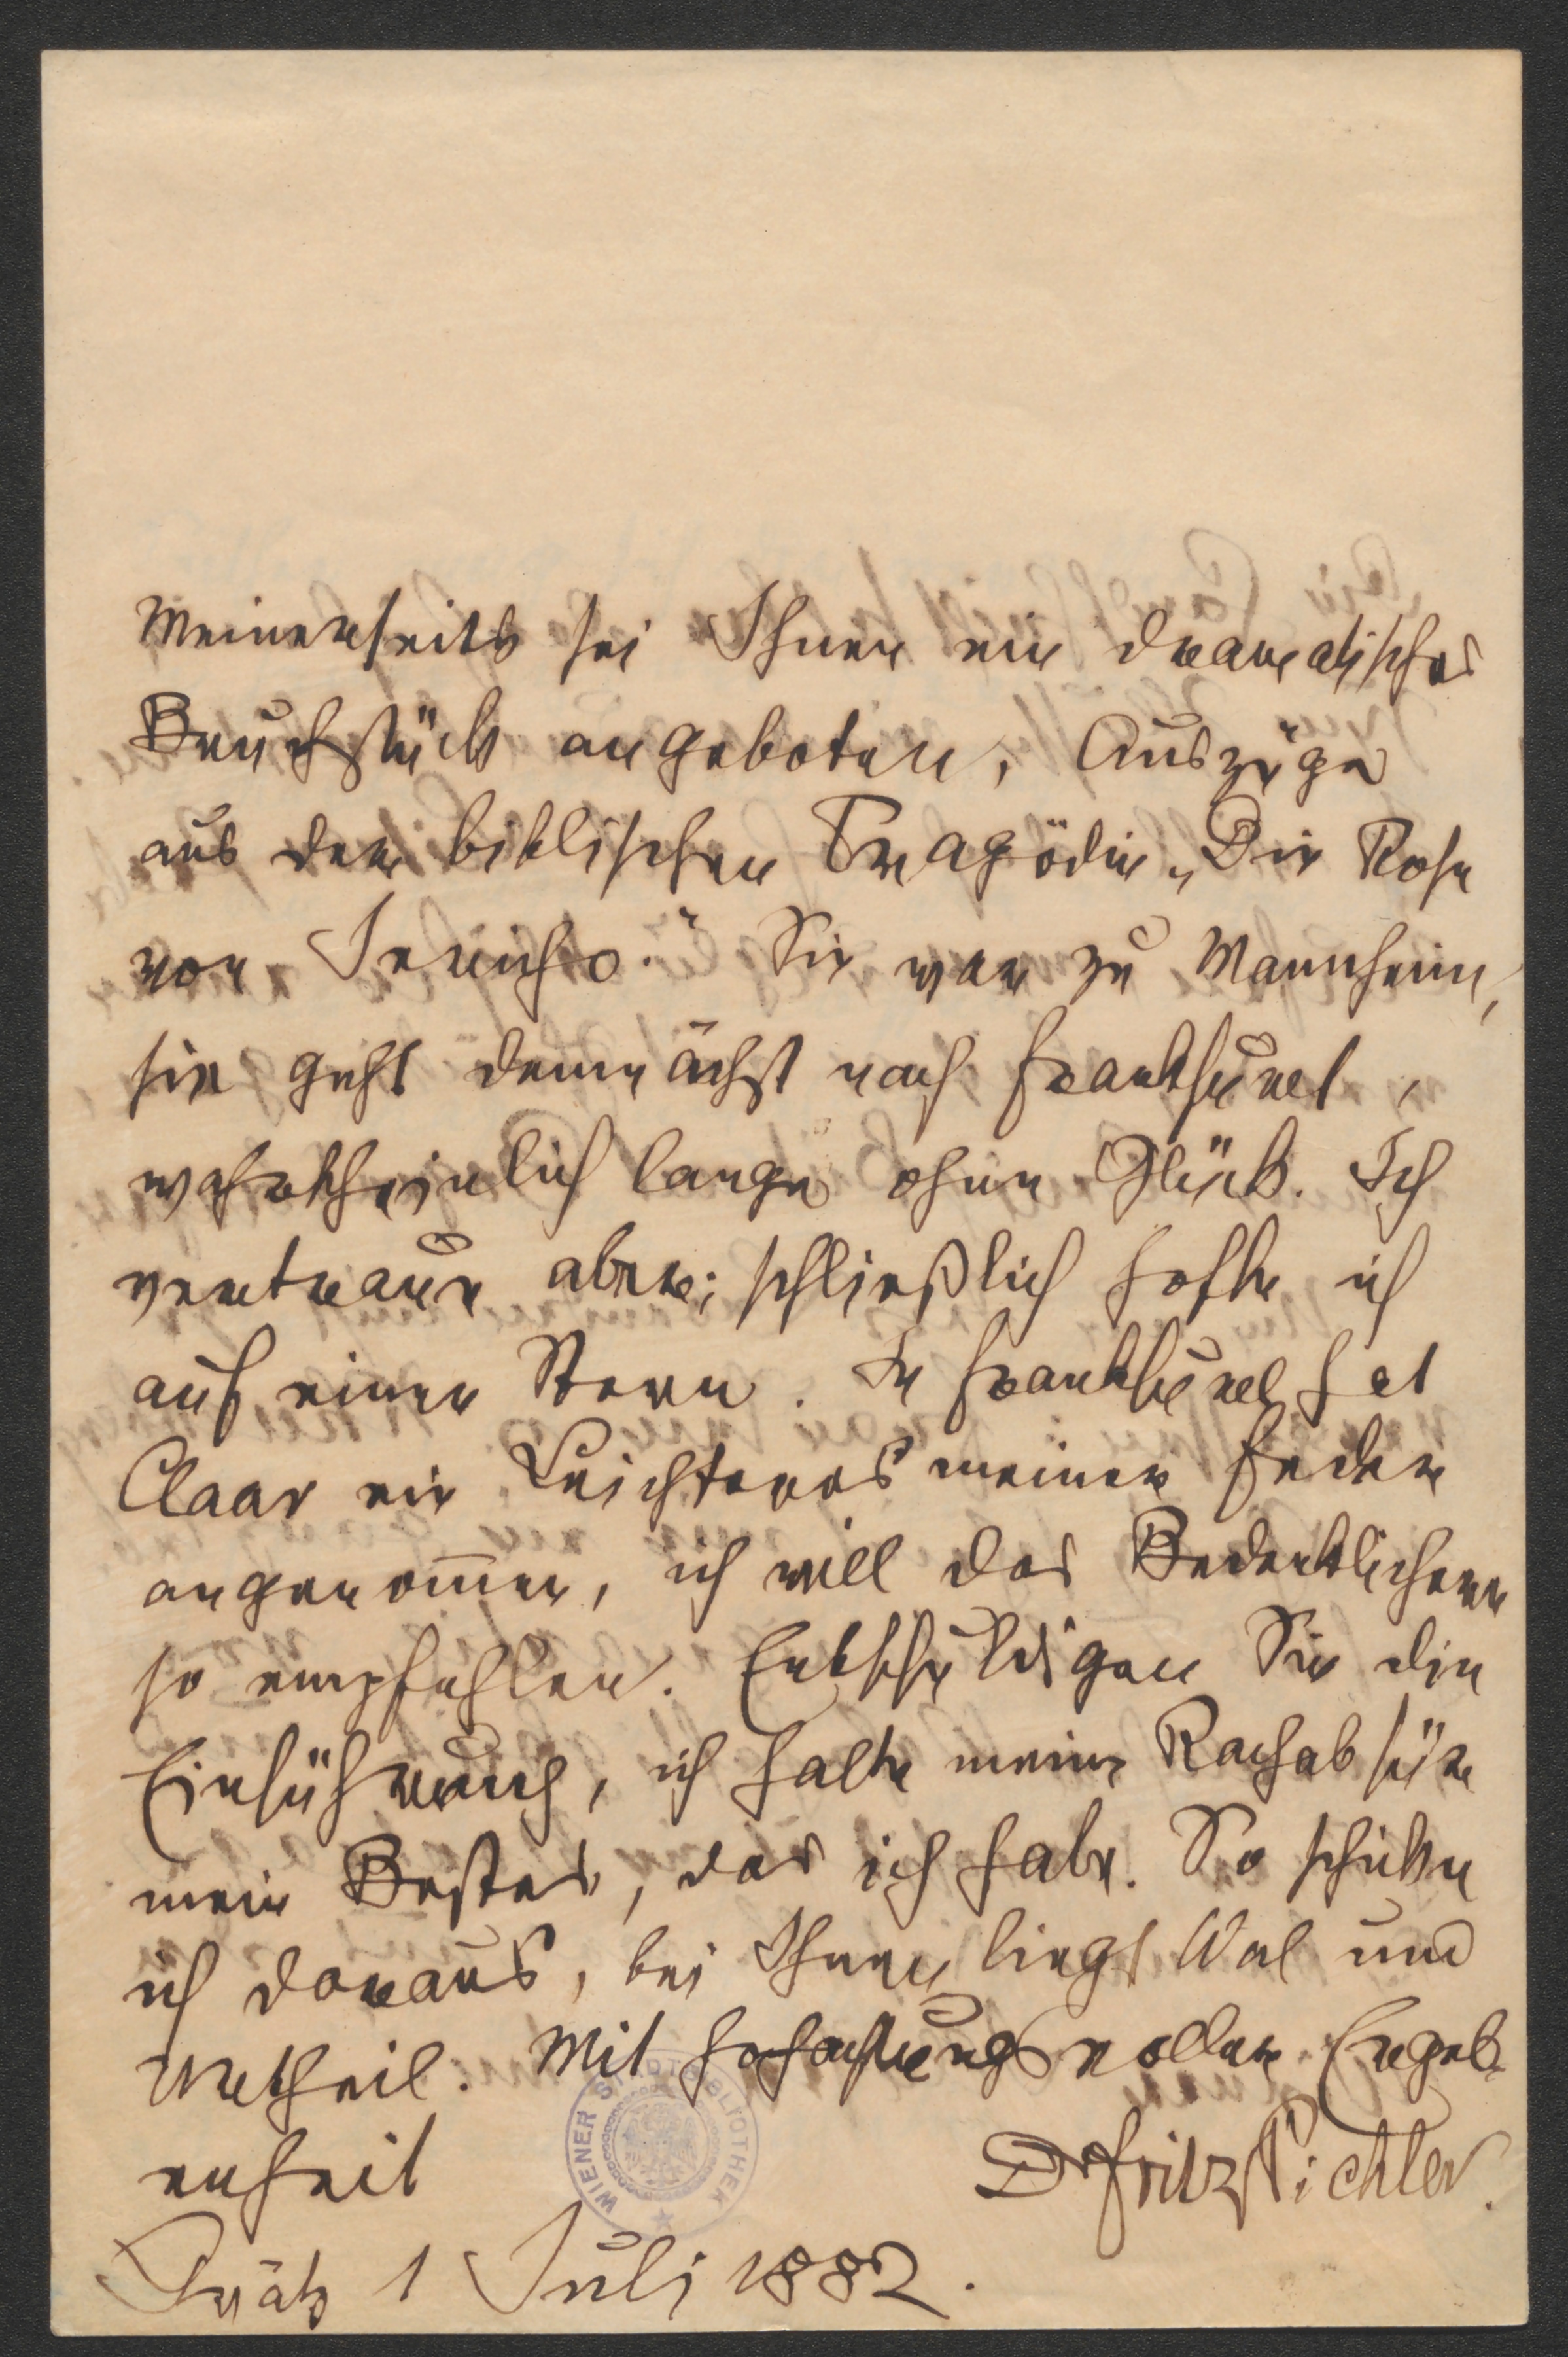 Meinerseits sei Ihnen ein dramatisches
Bruchstück angeboten, Auszüge
aus der biblischen Tragödie „Die Rose
von Jericho.“ Sie war zu Mannheim,
sie geht demnächst nach Frankfurt,
wahrscheinlich lange ohne Glück. Ich
vertraue aber; schließlich hoffe ich
auf einen Stern. In Frankfurt hat
Claar ein Leichteres meiner Feder
angenom̄en, ich will das Bedenklichere
so empfehlen. Entschuldigen Sie die
Einführung, ich halte meine Rachab für
mein Bestes, das ich habe. So schicke
ich daraus, bei Ihnen liegt Wal und
Urtheil. Mit hochachtungsvoller Ergeb-
enheit
Dr Fritz Pichler.
Grätz 1 Juli 1882.
WIENER STADTBIBLIOTHEK